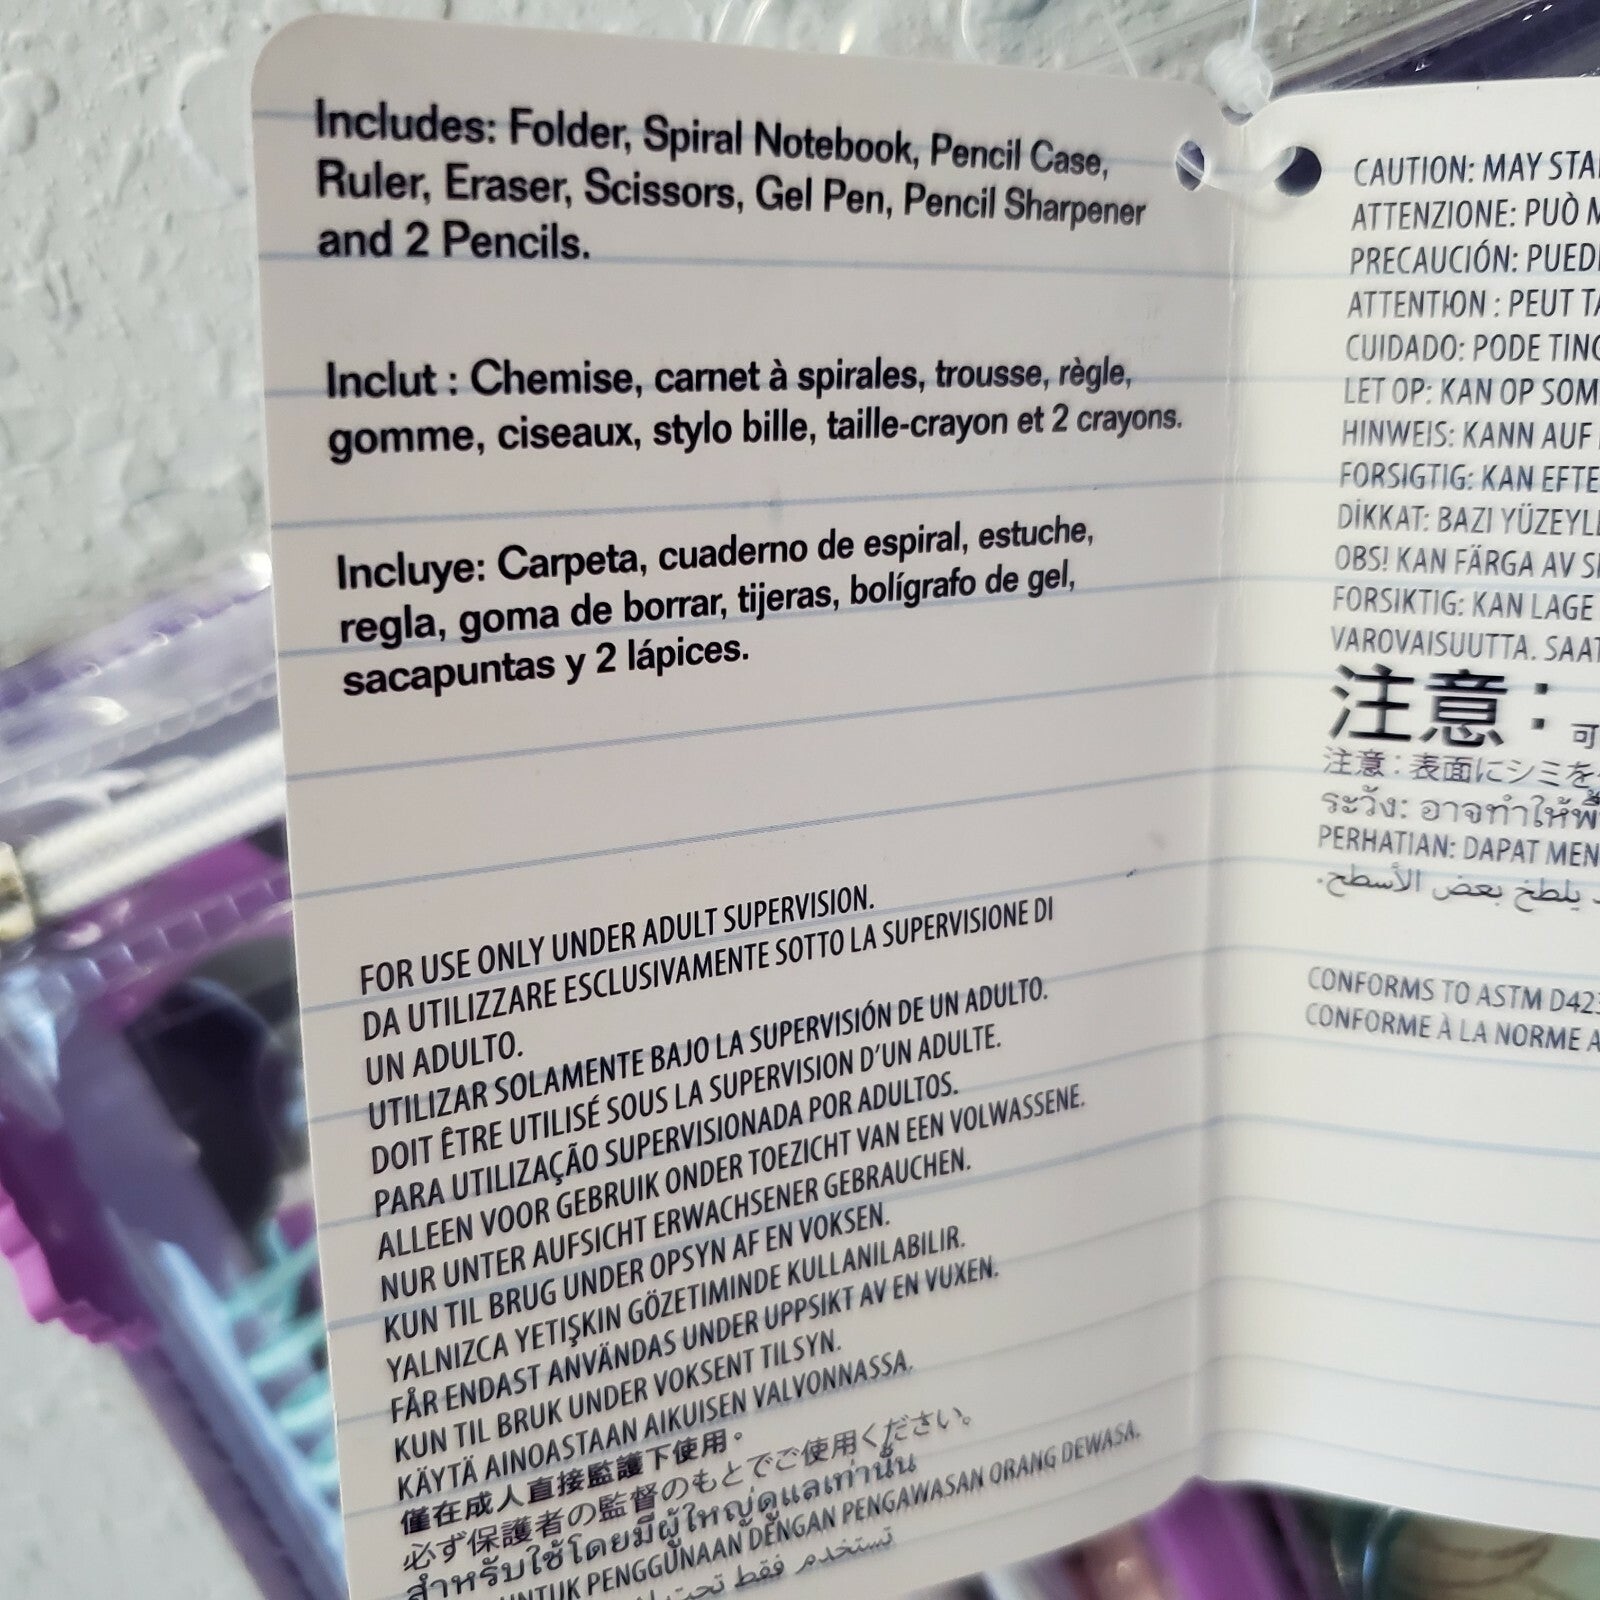 Includes: Folder, Spiral Notebook, Pencil Case,
Ruler, Eraser, Scissors, Gel Pen, Pencil Sharpener
and 2 Pencils.
Inclut : Chemise, carnet à spirales, trousse, règle,
gomme, ciseaux, stylo bille, taille-crayon et 2 crayons.
Incluye: Carpeta, cuaderno de espiral, estuche,
regla, goma de borrar, tijeras, bolígrafo de gel,
sacapuntas y 2 lápices.
FOR USE ONLY UNDER ADULT SUPERVISION.
DA UTILIZZARE ESCLUSIVAMENTE SOTTO LA SUPERVISIONE DI
UN ADULTO.
UTILIZAR SOLAMENTE BAJO LA SUPERVISIÓN DE UN ADULTO.
DOIT ÊTRE UTILISÉ SOUS LA SUPERVISION D'UN ADULTE.
PARA UTILIZAÇÃO SUPERVISIONADA POR ADULTOS.
ALLEEN VOOR GEBRUIK ONDER TOEZICHT VAN EEN VOLWASSENE.
NUR UNTER AUFSICHT ERWACHSENER GEBRAUCHEN.
KUN TIL BRUG UNDER OPSYN AF EN VOKSEN.
YALNIZCA YETIŞKIN GÖZETIMINDE KULLANILABILIR.
FÅR ENDAST ANVÄNDAS UNDER UPPSIKT AV EN VUXEN.
KUN TIL BRUK UNDER VOKSENT TILSYN.
KÄYTÄ AINOASTAAN AIKUISEN VALVONNASSA.
僅在成人直接監護下使用。
必ず保護者の監督のもとでご使用ください。
สำหรับใช้โดยมีผู้ใหญ่ดูแลเท่านั้น
UNTUK PENGGUNAAN DENGAN PENGAWASAN ORANG DEWASA.
تستخدم فقط تحت
CAUTION: MAY STA
ATTENZIONE: PUÒ M
PRECAUCIÓN: PUED
ATTENTION : PEUT TA
CUIDADO: PODE TING
LET OP: KAN OP SOM
HINWEIS: KANN AUF
FORSIGTIG: KAN EFTE
DİKKAT: BAZI YÜZEYL
OBS! KAN FÄRGA AV S
FORSIKTIG: KAN LAGE
VAROVAISUUTTA. SAAT
注意：可
注意：表面にシミを
ระวัง: อาจทำให้พื้
PERHATIAN: DAPAT MEN
يلطخ بعض الأسطح.
CONFORMS TO ASTM D423
CONFORME À LA NORME A